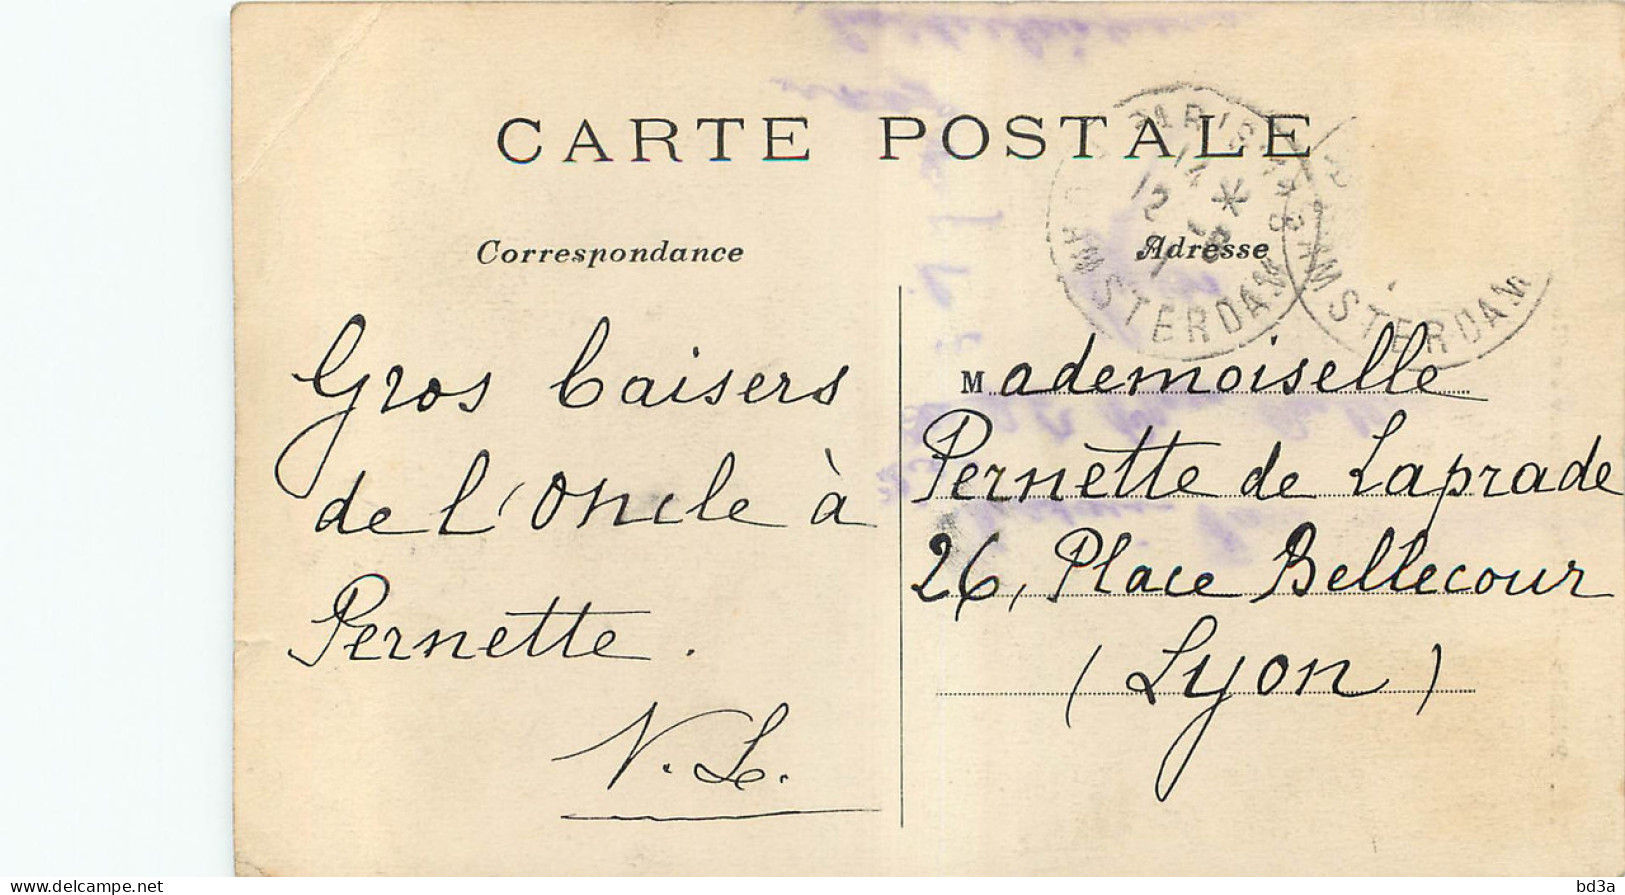 CARTE POSTALE
Correspondance
Adresse
Gros baisers
de l'Oncle à
Pernette.
V. L.
Mademoiselle
Pernette de Laprade
26, Place Bellecour
(Lyon)
AMSTERDAM
AMSTERDAM
www.delcampe.net
bd3a